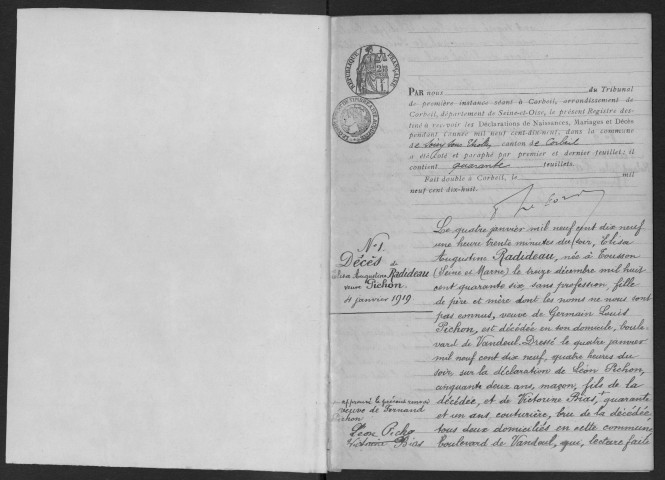 RÉPUBLIQUE FRANÇAISE
PAR nous du Tribunal
de première instance séant à Corbeil, arrondissement de
Corbeil, département de Seine-et-Oise, le présent Registre des-
tiné à recevoir les Déclarations de Naissances, Mariages et Décès
pendant l'année mil neuf cent dix-neuf, dans la commune
de canton de Corbeil
a été coté et paraphé par premier et dernier feuillet; il
contient quarante feuillets.
Fait double à Corbeil, le mil
neuf cent dix-huit.
N° 1.
Décès de
Elisa Augustine Radideau
veuve Pichon.
4 janvier 1919
Le quatre janvier mil neuf cent dix neuf
une heure trente minutes du soir, Elisa
Augustine Radideau, née à Tousson
(Seine et Marne) le treize décembre mil huit
cent quarante six, sans profession, fille
de père et mère dont les noms ne nous sont
pas connus, veuve de Germain Louis
Pichon, est décédée en son domicile, boule-
vard de Vandeul. Dressé le quatre janvier
mil neuf cent dix neuf, quatre heures du
soir, sur la déclaration de Léon Pichon,
cinquante deux ans, maçon, fils de la
décédée, et de Victorine Bias, quarante
et un ans, couturière, bru de la décédée,
tous deux domiciliés en cette commune
boulevard de Vandeul, qui, lecture faite
approuvé le présent renvoi
veuve de Fernand
Pichon
Léon Pichon
Victorine Bias